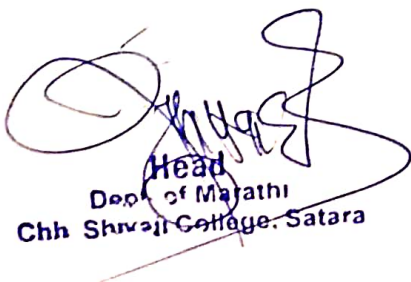 Head
Dept. of Marathi
Chh Shivaji College, Satara